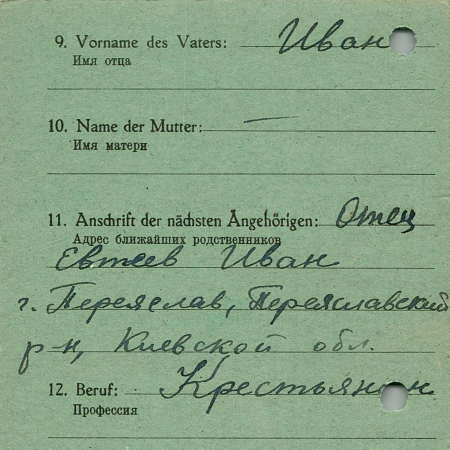 9. Vorname des Vaters: Иван
Имя отца
10. Name der Mutter: —
Имя матери
11. Anschrift der nächsten Angehörigen: Отец
Адрес ближайших родственников
Евтеев Иван
г. Переяслав, Переяславский
р-н, Киевской обл.
12. Beruf: Крестьянин
Профессия